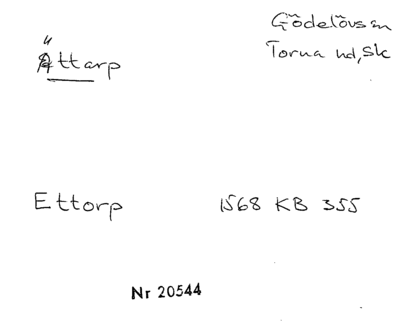 Ättarp
Gödelövs sn
Torna hd, Sk
Ettorp 1568 KB 355
Nr 20544